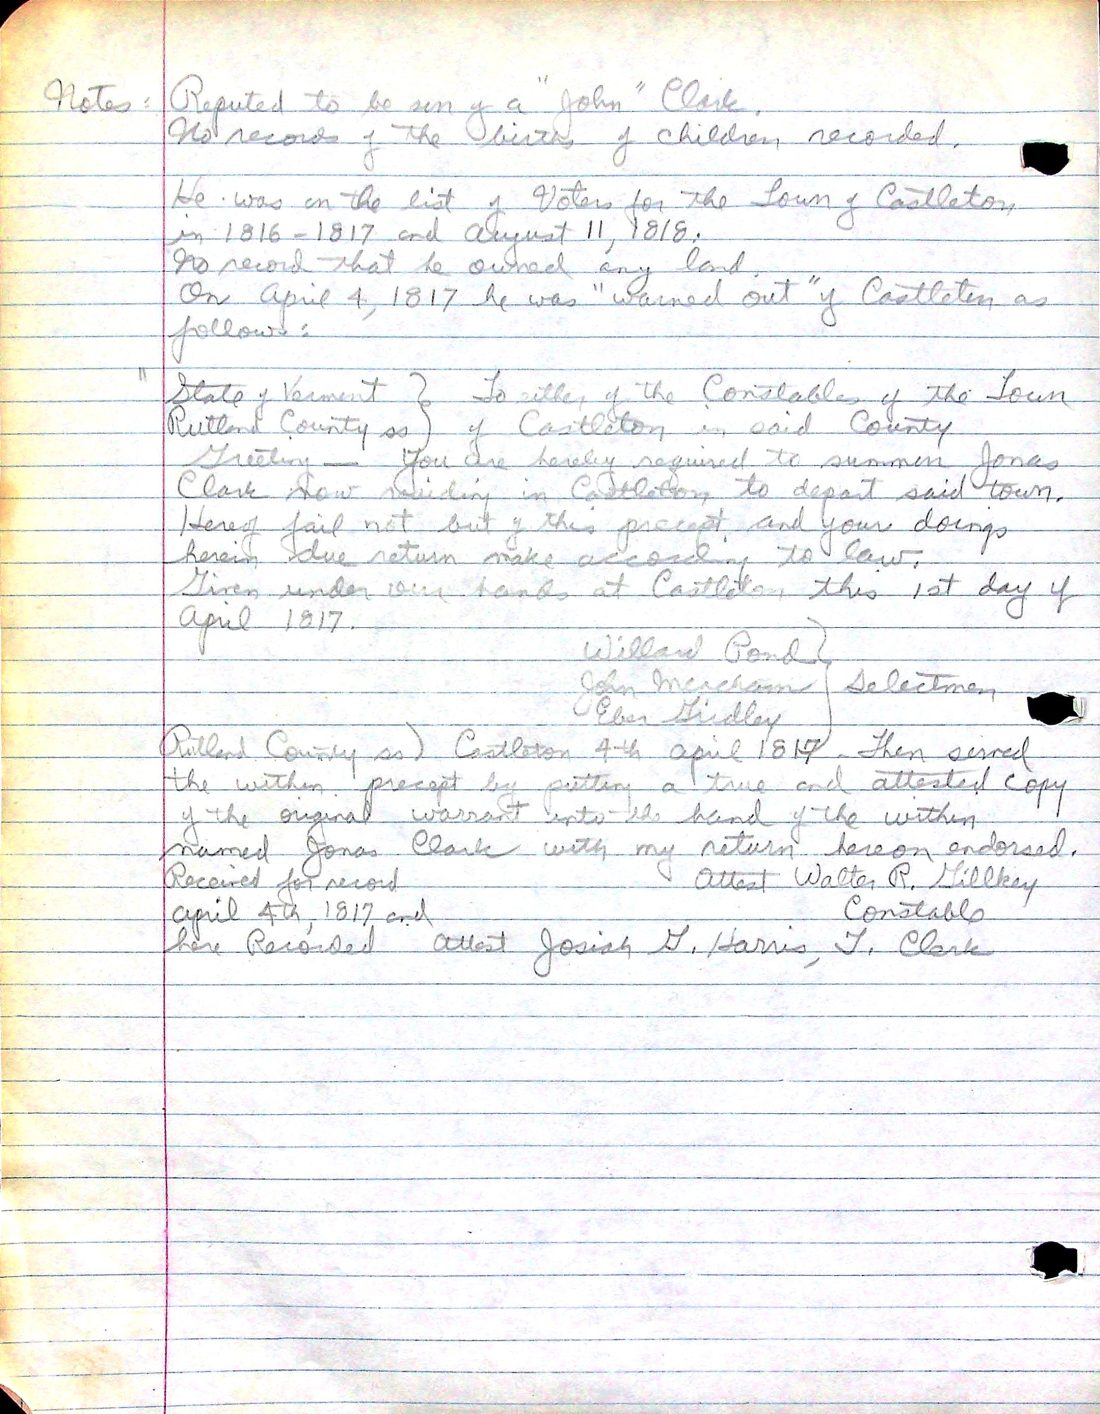 Notes: Reputed to be son of a "John" Clark.
No records of the births of children recorded.
He was on the list of Voters for the Town of Castleton
in 1816-1817 and August 11, 1818.
No record that he owned any land.
On April 4, 1817 he was "warned out" of Castleton as
follows:
" State of Vermont } To either of the Constables of the Town
Rutland County ss ) of Castleton in said County
Greeting — You are hereby required to summon Jonas
Clark now residing in Castleton to depart said town.
Hereof fail not but of this precept and your doings
herein due return make according to law.
Given under our hands at Castleton this 1st day of
April 1817.
Willard Pond }
John Meacham } Selectmen
Eber Gridley
Rutland County ss) Castleton 4th April 1817. Then served
the within precept by putting a true and attested copy
of the original warrant into the hand of the within
named Jonas Clark with my return hereon endorsed.
Received for record Attest Walter R. Gillkey
April 4th, 1817 and Constable
here Recorded Attest Josiah G. Harris, T. Clerk